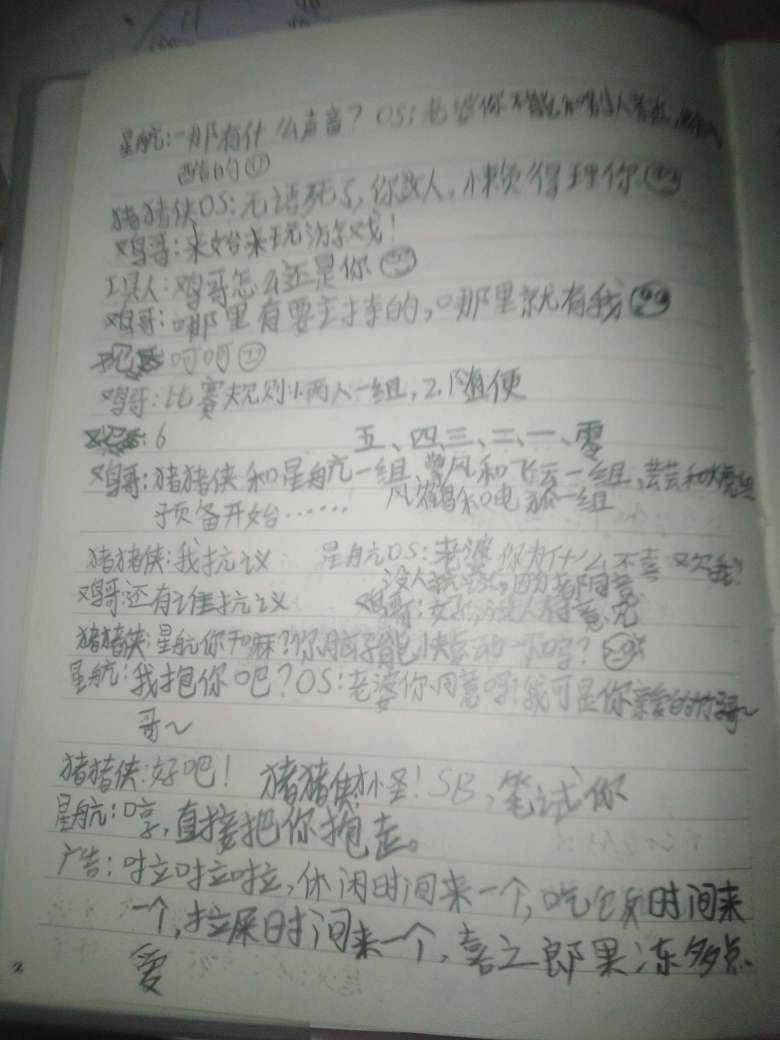 星航:那有什么声音? OS:老婆你不能和别人
酷的
猪猪侠OS:无语死了,你敌人,懒负得理你
鸡哥:来始来玩汸戏!
工具人:鸡哥怎么还是你
鸡哥:哪里有要主持的,哪里就有我
呵呵
鸡哥:比赛规则1.两人一组,2.随便
:6 五、四、三、二、一、零
鸡哥:猪猪侠和星航一组、风和飞云一组、芸芸和
预备开始…… 风鹤和电狐一组
猪猪侠:我抗议 星航OS:老婆你为什么不喜欢我!
没人,因为都同意
鸡哥还有谁抗议 鸡哥:好,没人有意见
猪猪侠:星航你干嘛?你脑子能快运动一下吗?
星航:我抱你吧?OS:老婆你同意吗!我可是你亲爱的
哥~
猪猪侠:好吧! 猪猪侠小圣!SB,笔试你
星航:哼,直接把你抱走。
广告:啦啦啦,休闲时间来一个,吃包包时间来
一个,拉屎时间来一个,喜之郎果冻多点
爱
2